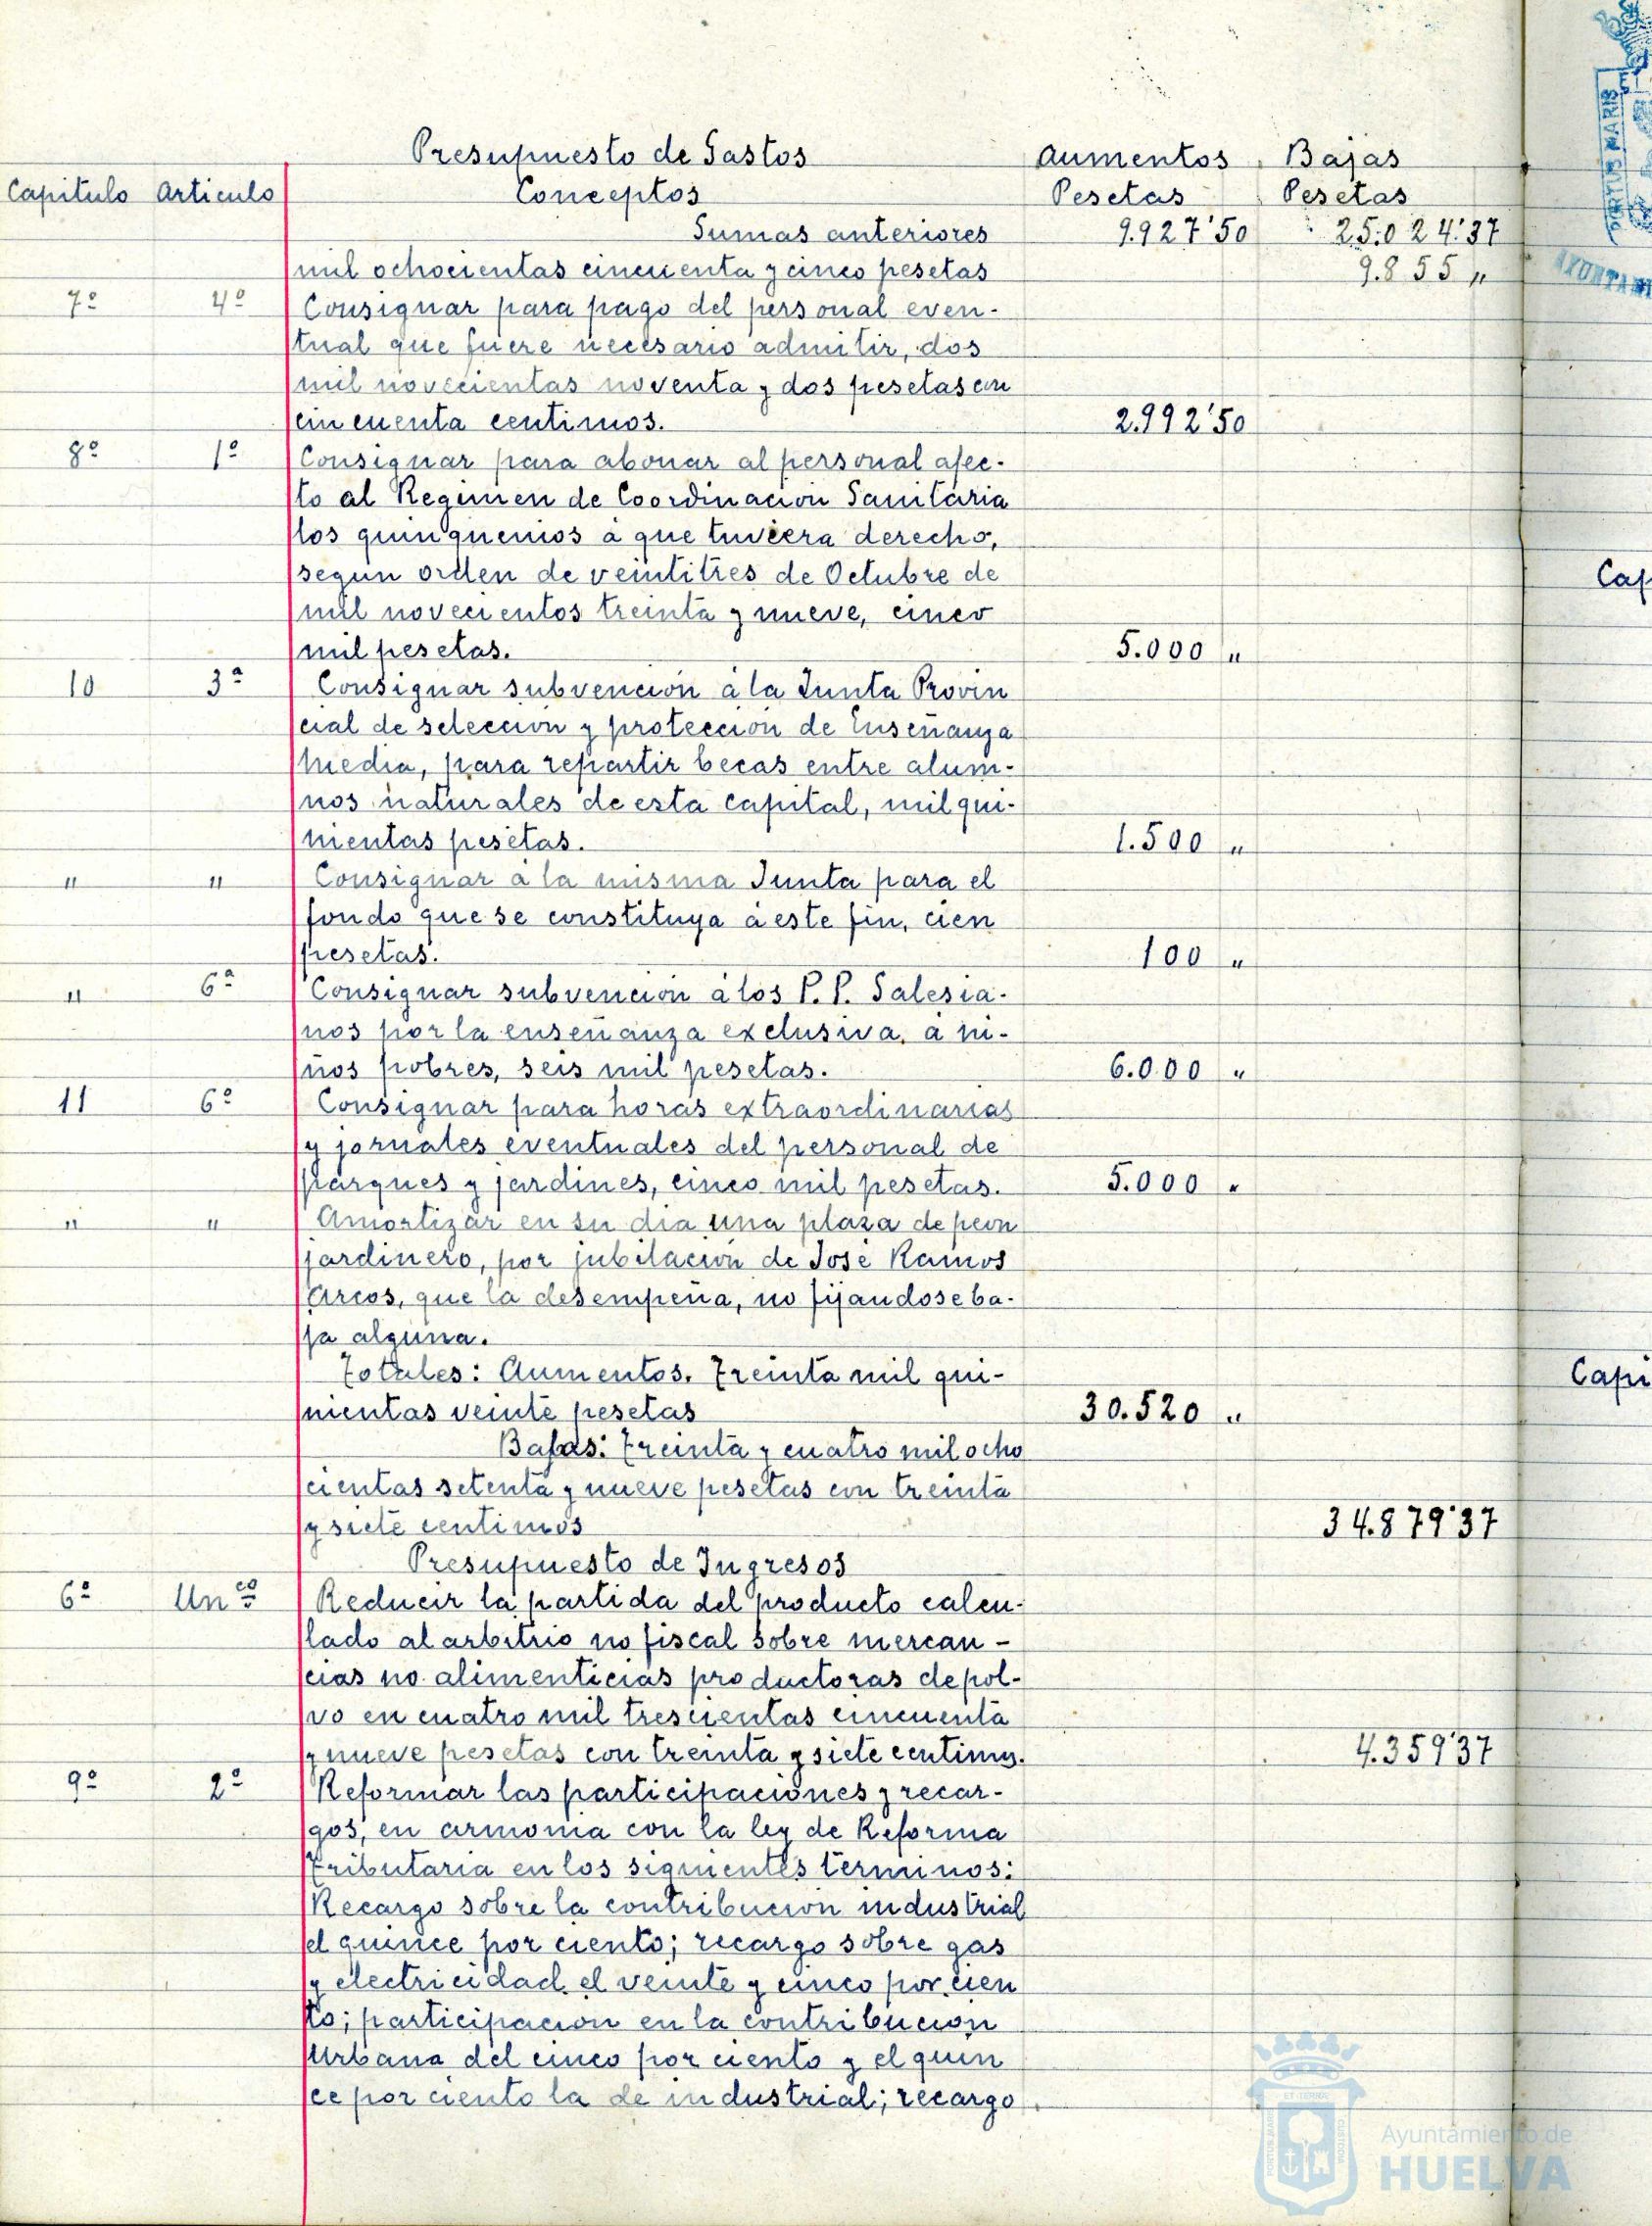 Presupuesto de Gastos Aumentos Bajas
Capitulo Articulo Conceptos Pesetas Pesetas
Sumas anteriores 9.927'50 25.024'37
mil ochocientas cincuenta y cinco pesetas 9.855 "
7º 4º Consignar para pago del personal even-
tual que fuere necesario admitir, dos
mil novecientas noventa y dos pesetas con
cincuenta centimos. 2.992'50
8º 1º Consignar para abonar al personal afec-
to al Regimen de Coordinación Sanitaria
los quinquenios á que tuviera derecho,
segun orden de veintitres de Octubre de
mil novecientos treinta y nueve, cinco
mil pesetas. 5.000 "
10 3º Consignar subvención á la Junta Provin
cial de selección y protección de Enseñanza
Media, para repartir becas entre alum-
nos naturales de esta capital, mil qui-
nientas pesetas. 1.500 "
" " Consignar á la misma Junta para el
fondo que se constituya á este fin, cien
pesetas. 100 "
" 6º Consignar subvención á los P.P. Salesia-
nos por la enseñanza exclusiva, a ni-
ños pobres, seis mil pesetas. 6.000 "
11 6º Consignar para horas extraordinarias
y jornales eventuales del personal de
Parques y jardines, cinco mil pesetas. 5.000 "
" " Amortizar en su dia una plaza de peon
jardinero, por jubilación de José Ramos
Arcos, que la desempeña, no fijandose ba-
ja alguna.
Totales: Aumentos. Treinta mil qui-
nientas veinte pesetas 30.520 "
Bajas: Treinta y cuatro mil ocho
cientas setenta y nueve pesetas con treinta
y siete centimos 34.879'37
Presupuesto de Ingresos
6º Unco Reducir la partida del producto calcu-
lado al arbitrio no fiscal sobre mercan-
cias no alimenticias productoras de pol-
vo en cuatro mil trescientas cincuenta
y nueve pesetas con treinta y siete centimos. 4.359'37
9º 2º Reformar las participaciones y recar-
gos, en armonia con la ley de Reforma
Tributaria en los siguientes terminos:
Recargo sobre la contribución industrial
el quince por ciento; recargo sobre gas
y electricidad el veinte y cinco por cien
to; participación en la contribución
Urbana del cinco por ciento y el quin
ce por ciento la de industrial; recargo
PORTUS MARIS
Cap
Capi
Ayuntamiento de
HUELVA